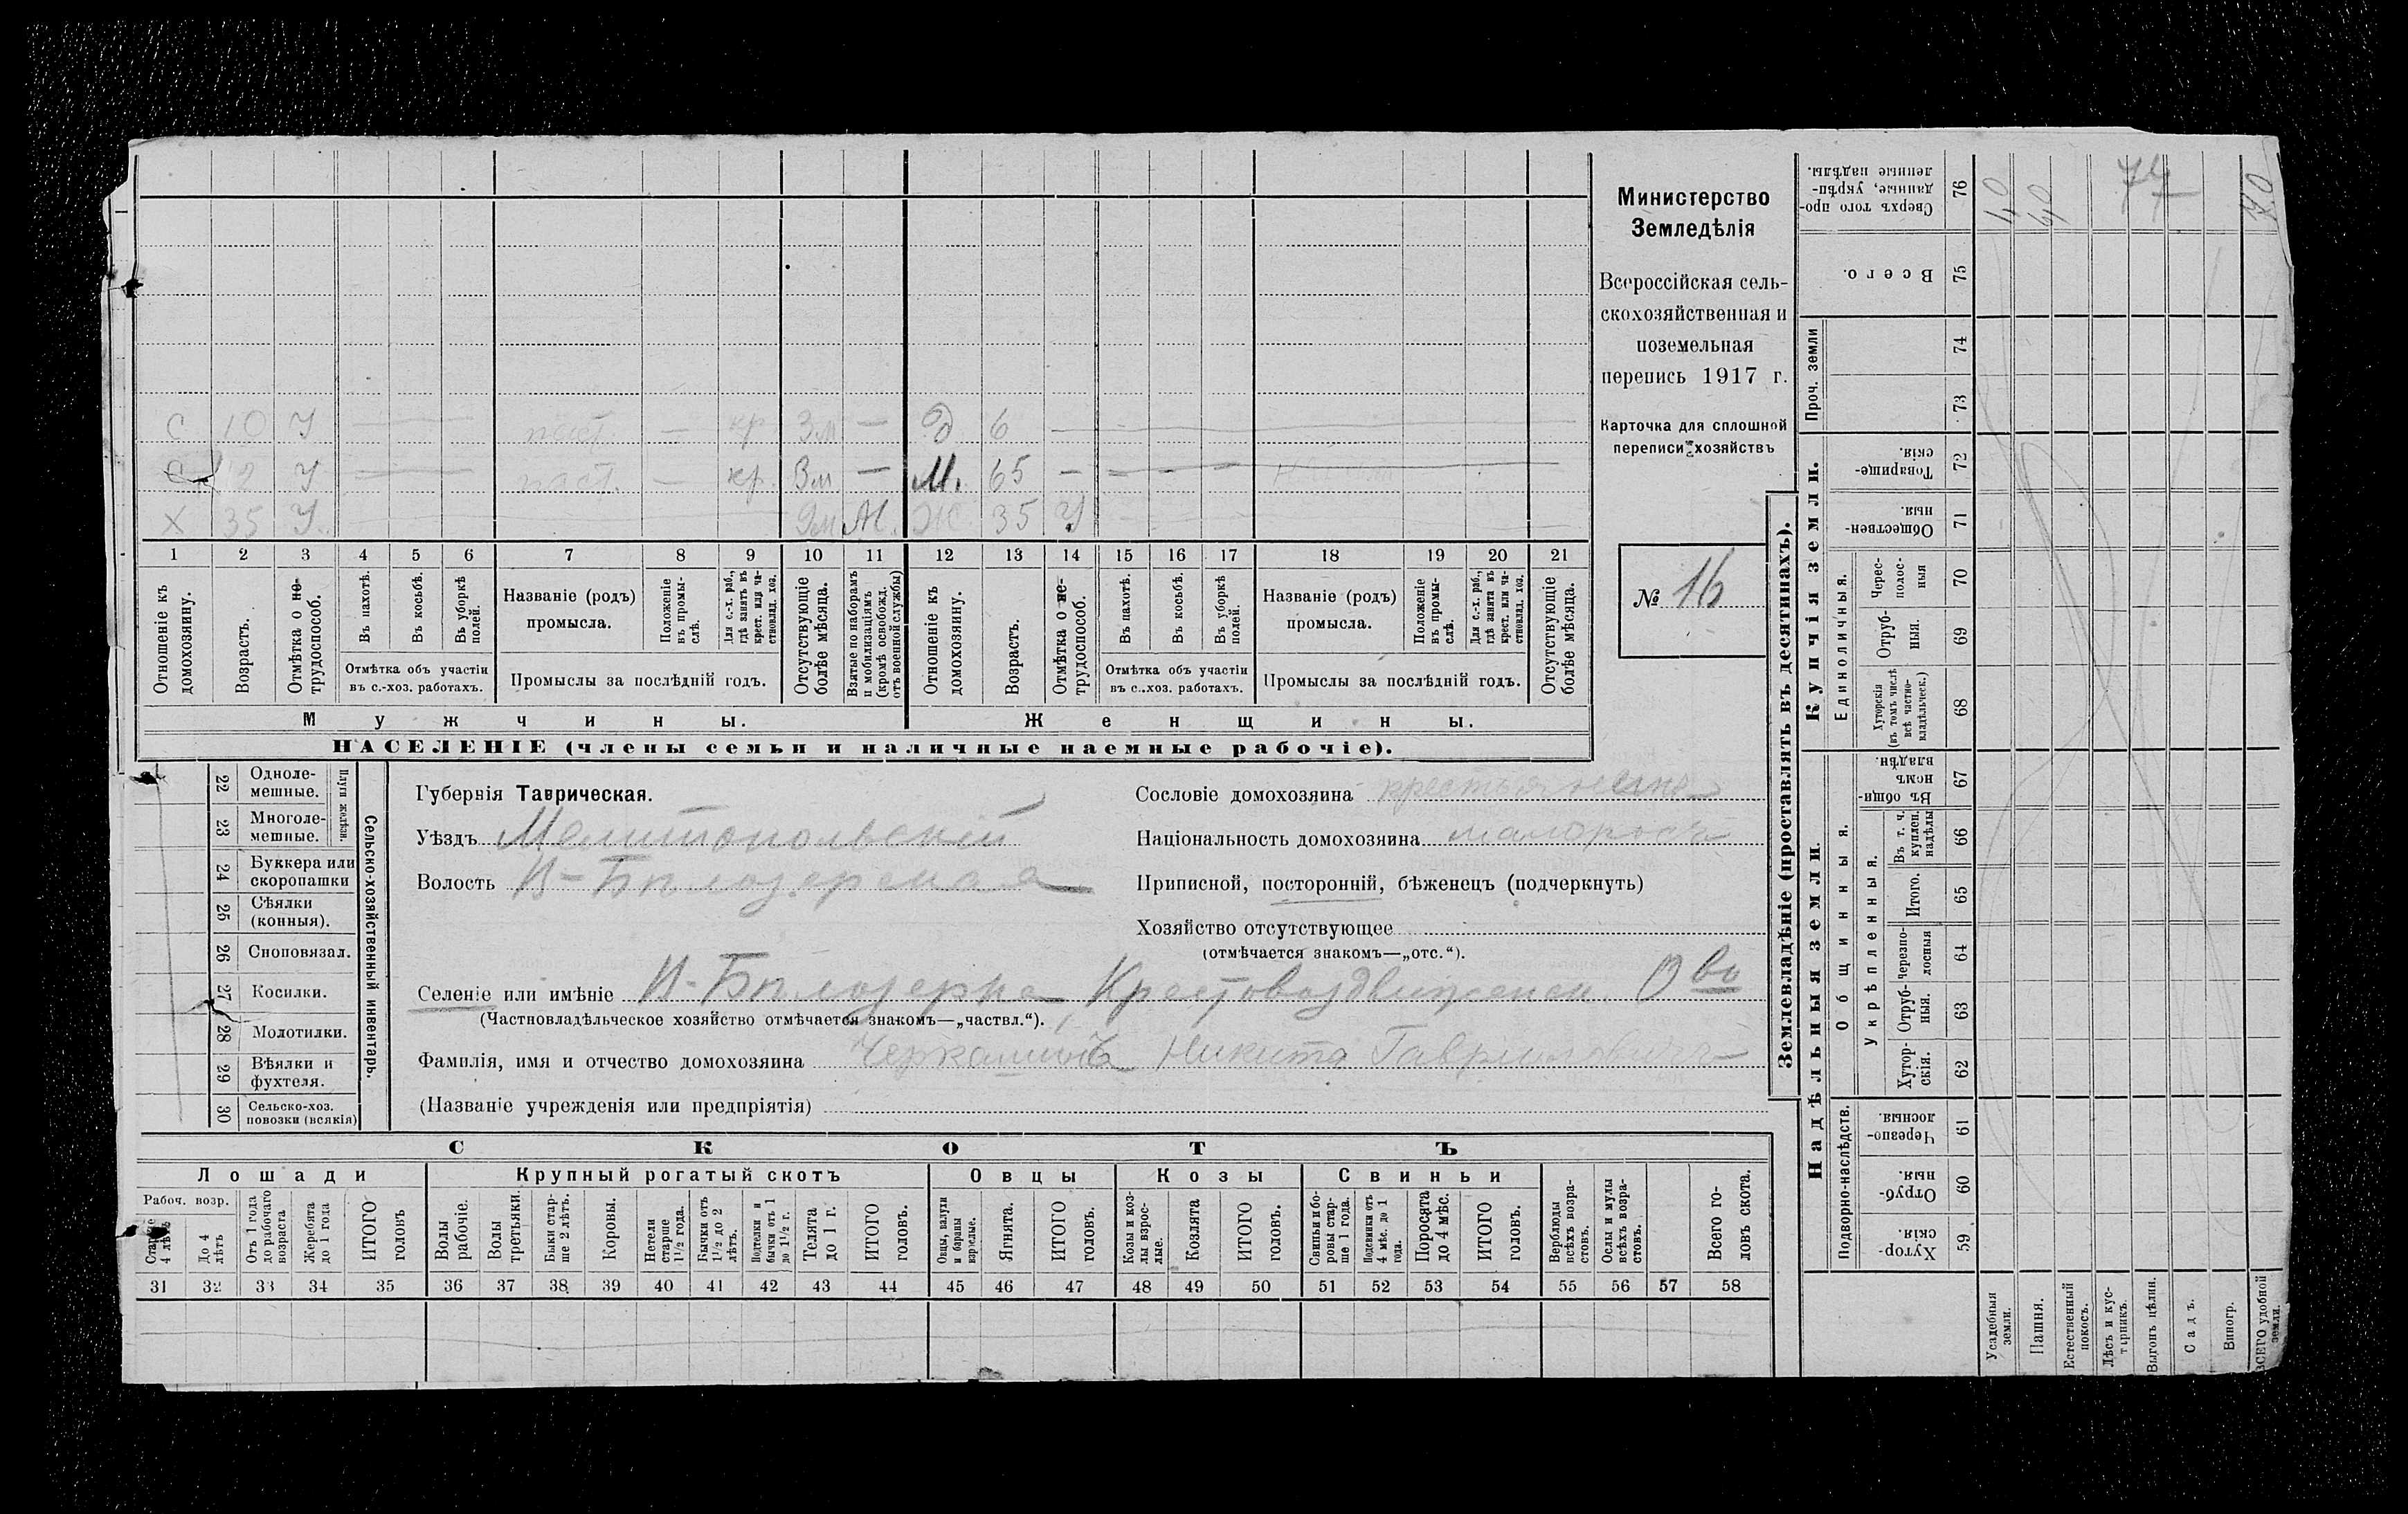 С 10 У — — паст. — кр Зм — Д 6 —
С 12 У — — паст. — кр. Зм — М. 65 —
Х 35 У М. Ж 35 У
1 2 3 4 5 6 7 8 9 10 11 12 13 14 15 16 17 18 19 20 21
Отношеніе къ домохозяину.
Возрастъ.
Отмѣтка о не-трудоспособ.
Въ пахотѣ.
Въ косьбѣ.
Въ уборкѣ полей.
Отмѣтка объ участіи
въ с.-хоз. работахъ.
Названіе (родъ)
промысла.
Положеніе въ промы-слѣ.
Для с.-х. раб., гдѣ занятъ въ крест. или ча-стновлад. хоз.
Промыслы за послѣдній годъ.
Отсутствующіе болѣе мѣсяца.
Взятые по наборамъ и мобилизаціямъ (кромѣ освобожд. отъ военной службы)
Отношеніе къ домохозяину.
Возрастъ.
Отмѣтка о не-трудоспособ.
Въ пахотѣ.
Въ косьбѣ.
Въ уборкѣ полей.
Отмѣтка объ участіи
въ с..хоз. работахъ.
Названіе (родъ)
промысла.
Положеніе въ промы-слѣ.
Для с.-х. раб., гдѣ занята въ крест. или ча-стновлад. хоз.
Промыслы за послѣдній годъ.
Отсутствующіе болѣе мѣсяца.
Мужчины.
Женщины.
НАСЕЛЕНІЕ (члены семьи и наличные наемные рабочіе).
Министерство
Земледѣлія
Всероссійская сель-
скохозяйственная и
поземельная
перепись 1917 г.
Карточка для сплошной
переписи хозяйствъ
№ 16
22 Одноле-мешные.
23 Многоле-мешные.
Плуги желѣзн.
24 Буккера или скоропашки
25 Сѣялки (конныя).
26 Сноповязал.
27 Косилки.
28 Молотилки.
29 Вѣялки и фухтеля.
30 Сельско-хоз. повозки (всякія)
Сельско-хозяйственный инвентарь.
Губернія Таврическая.
Уѣздъ Мелитопольскій
Волость В-Бѣлозерская
Сословіе домохозяина крестьянинъ
Національность домохозяина малороссъ
Приписной, посторонній, бѣженецъ (подчеркнуть)
Хозяйство отсутствующее
(отмѣчается знакомъ—„отс.“).
Селеніе или имѣніе В-Бѣлозерка, Крестовоздвиженск. О во
(Частновладѣльческое хозяйство отмѣчается знакомъ—„частвл.“).
Фамилія, имя и отчество домохозяина Черкашинъ Никита Гавриловичъ
(Названіе учрежденія или предпріятія)
СКОТЪ
Лошади
Крупный рогатый скотъ
Овцы
Козы
Свиньи
Рабоч. возр.
Старше 4 лѣтъ
До 4 лѣтъ
Отъ 1 года до рабочаго возраста
Жеребята до 1 года
ИТОГО головъ
Волы рабочіе.
Волы третьяки.
Быки стар-ше 2 лѣтъ.
Коровы.
Нетели старше 1½ года.
Бычки отъ 1½ до 2 лѣтъ.
Подтелки и бычки отъ 1 до 1½ г.
Телята до 1 г.
ИТОГО головъ.
Овцы, валухи и бараны взрослые.
Ягнята.
ИТОГО головъ.
Козы и коз-лы взрос-лые.
Козлята
ИТОГО головъ.
Свиньи и бо-ровы стар-ше 1 года.
Подсвинки отъ 4 мѣс. до 1 года.
Поросята до 4 мѣс.
ИТОГО головъ.
Верблюды всѣхъ возра-стовъ.
Ослы и мулы всѣхъ возра-стовъ.
Всего го-ловъ скота.
31 32 33 34 35 36 37 38 39 40 41 42 43 44 45 46 47 48 49 50 51 52 53 54 55 56 57 58
Землевладѣніе (проставлять въ десятинахъ).
Купчія земли.
Надѣльныя земли
Проч. земли
Единоличныя.
Общинныя.
Укрѣпленныя.
Подворно-наслѣдств.
Сверхъ того про-данные, укрѣп-ленные надѣлы. 76
Всего. 75
74
73
Товарище-скія. 72
Обществен-ныя. 71
Черес-полос-ныя 70
Отруб-ныя. 69
Хуторскія (въ томъ числѣ всѣ частно-владѣльческ.) 68
Въ общи-номъ владѣн. 67
Въ т. ч. куплен. надѣлы 66
Итого. 65
Черезпо-лосныя 64
Отруб-ныя. 63
Хутор-скія. 62
Черезпо-лосныя 61
Отруб-ныя. 60
Хутор-скія 59
Усадебныя земли.
Пашня.
Естественный покосъ.
Лѣсъ и кус-тарникъ.
Выгонъ цѣлин.
Садъ.
Виногр.
ВСЕГО удобной земли.